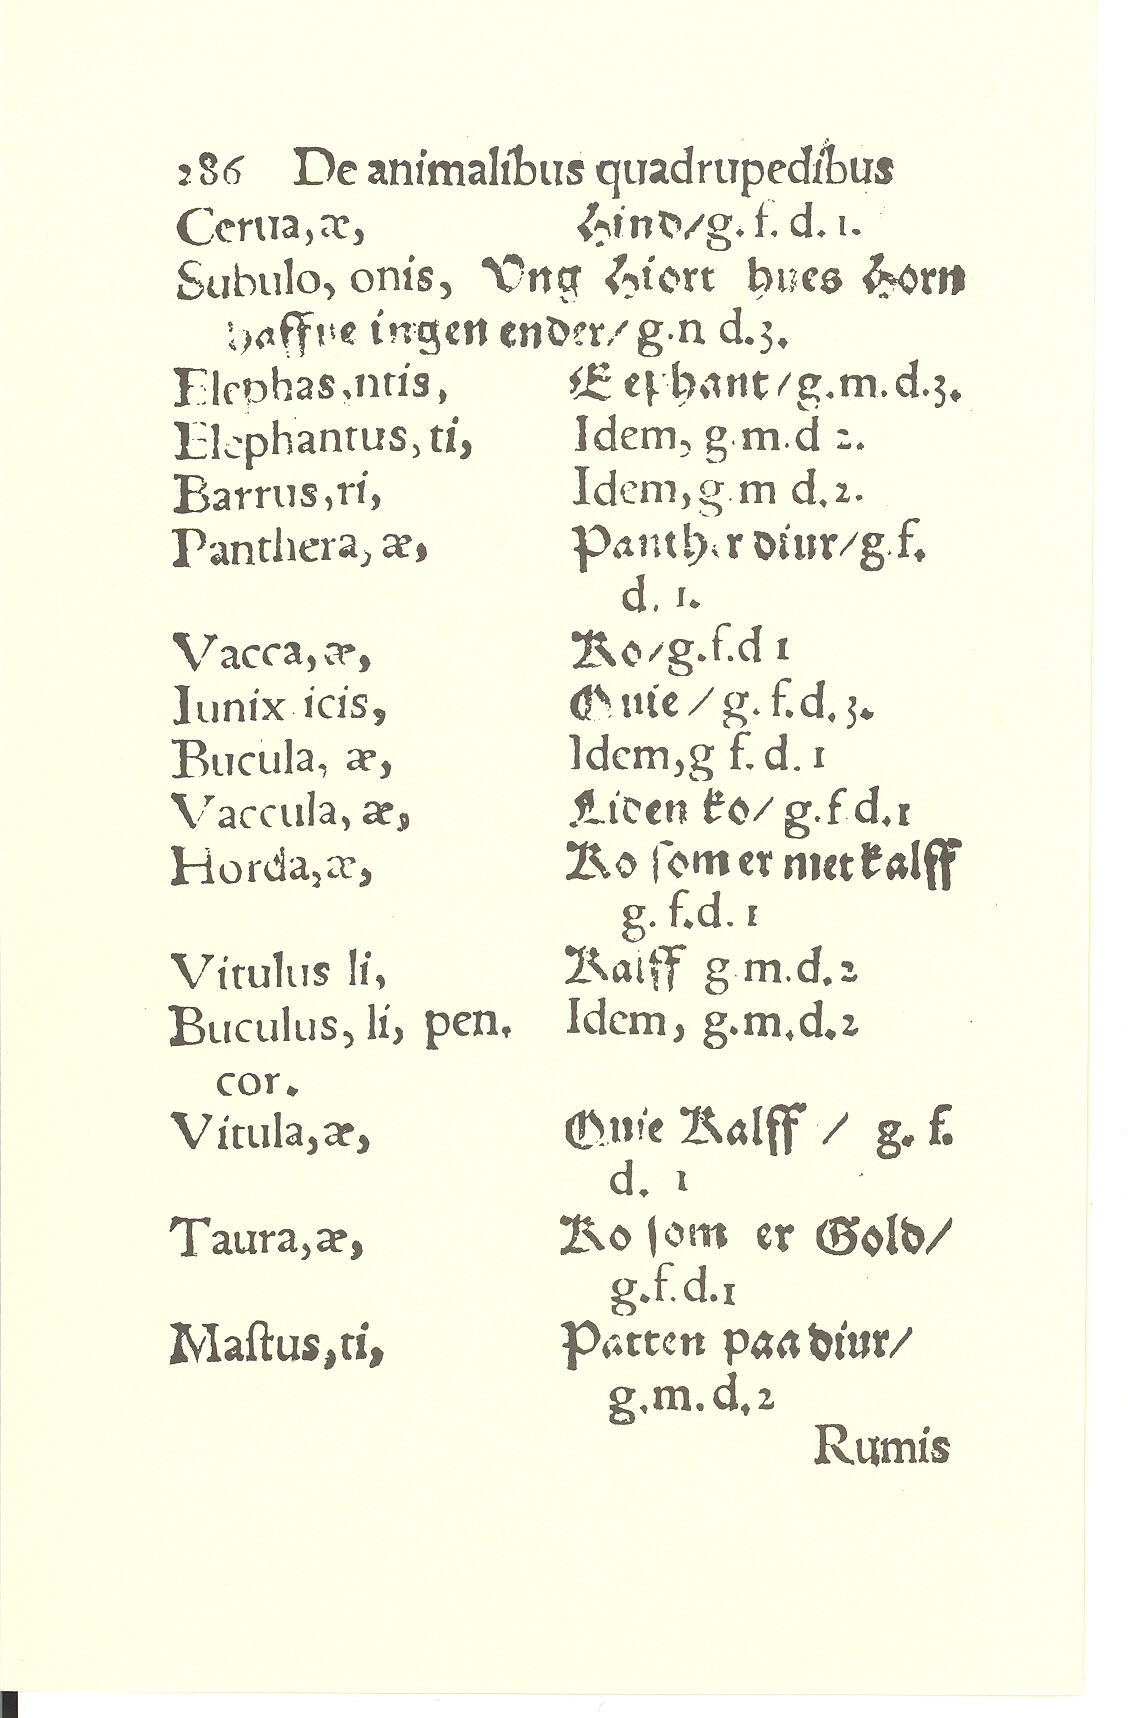 286 De animalibus quadrupedibus
Cerua, æ, Hind/g. f. d. 1.
Subulo, onis, Vng Hiort hues Horn
haffue ingen ender/ g.n d.3.
Elephas,ntis, Elephant/g.m.d.3.
Elephantus, ti, Idem, g.m.d 2.
Barrus,ri, Idem,g.m d.2.
Panthera, æ, Panther diur/g.f.
d. 1.
Vacca, æ, Ko/g.f.d 1
Iunix icis, Quie / g. f.d.3.
Bucula, æ, Idem,g f. d. 1
Vaccula, æ, Liden ko/ g.f d.1
Horda,æ, Ko ſom er met kalff
g. f.d. 1
Vitulus li, Kalff g.m.d.2
Buculus, li, pen. Idem, g.m.d.2
cor.
Vitula,æ, Quie Kalff / g. f.
d. 1
Taura,æ, Ko ſom er Gold/
g.f.d.1
Maſtus,ti, Patten paa diur/
g.m.d.2
Rumis